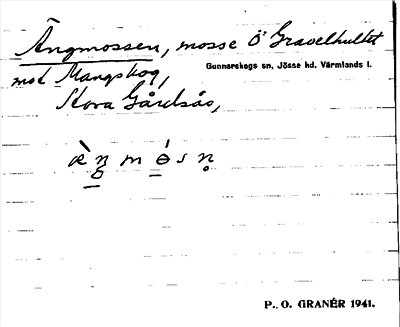 Ängmossen, mosse Ö Gravelhultet
Gunnarskogs sn, Jösse hd, Värmlands l.
mot Mangskog,
Stora Gårdsås,
P. O. GRANÉR 1941.